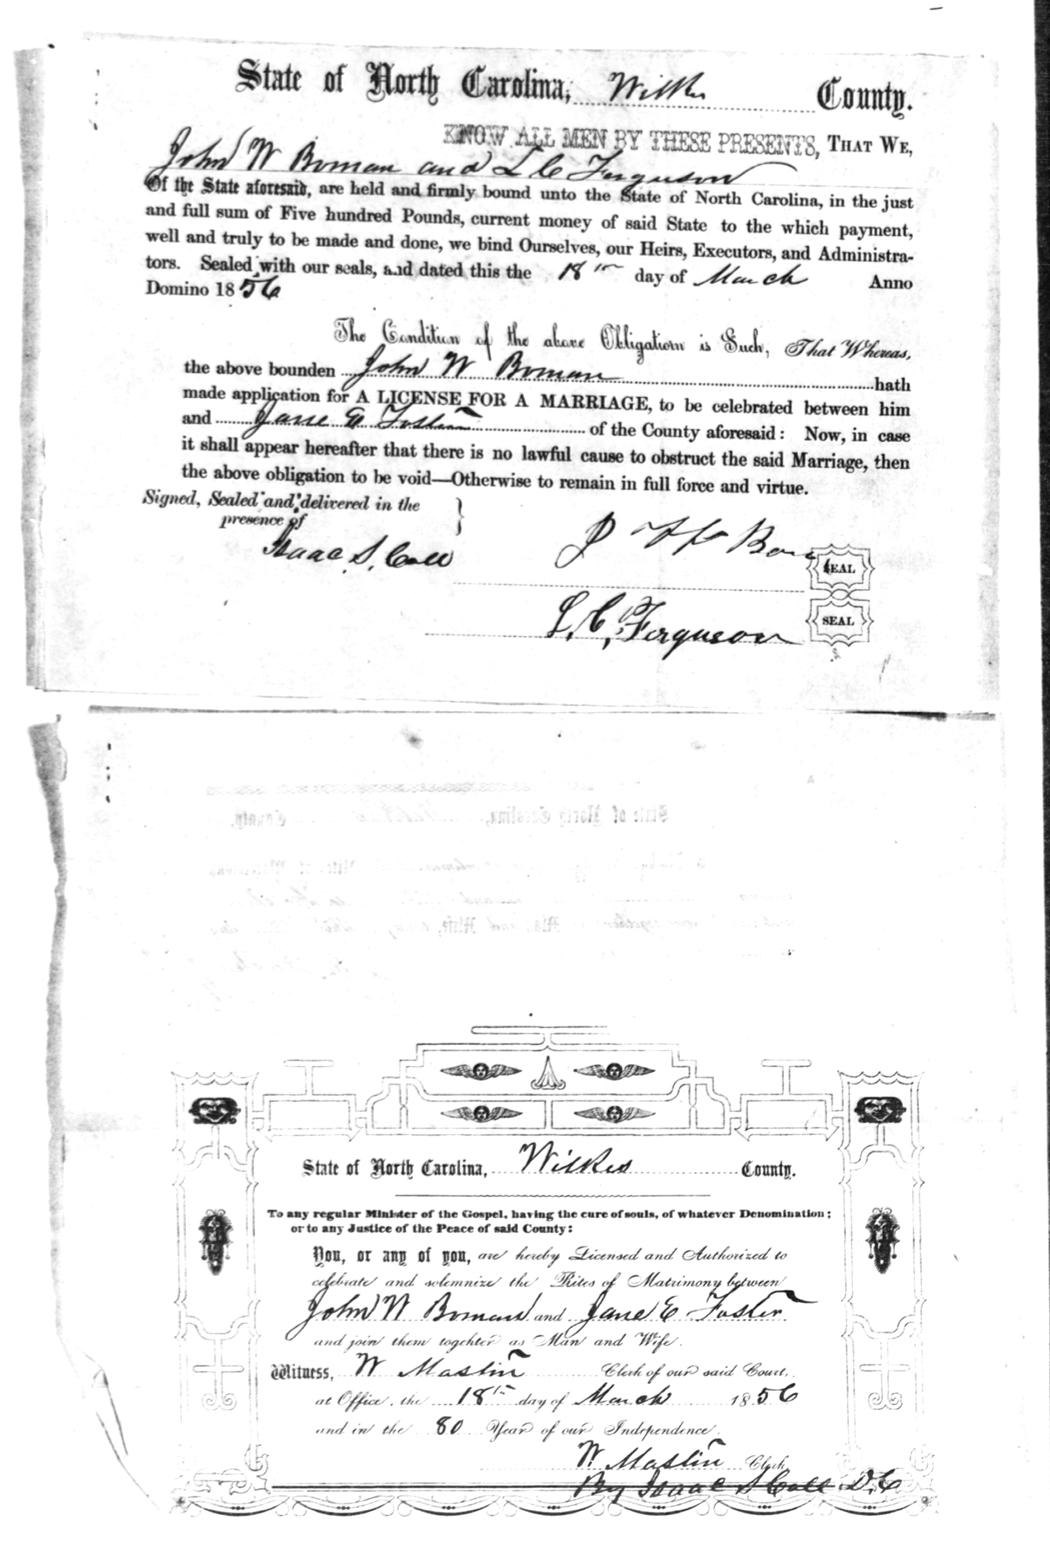 State of North Carolina, Wilkes County.
KNOW ALL MEN BY THESE PRESENTS, THAT WE,
John W Boman and L C Ferguson
Of the State aforesaid, are held and firmly bound unto the State of North Carolina, in the just
and full sum of Five hundred Pounds, current money of said State to the which payment,
well and truly to be made and done, we bind Ourselves, our Heirs, Executors, and Administra-
tors. Sealed with our seals, and dated this the 18th day of March Anno
Domino 1856
The Condition of the above Obligation is Such, That Whereas,
the above bounden John W Boman hath
made application for A LICENSE FOR A MARRIAGE, to be celebrated between him
and Jane E Foster of the County aforesaid: Now, in case
it shall appear hereafter that there is no lawful cause to obstruct the said Marriage, then
the above obligation to be void—Otherwise to remain in full force and virtue.
Signed, Sealed and delivered in the
presence of
Isaac S. Call
J W Boman SEAL
L. C. Ferguson SEAL
State of North Carolina, County.
State of North Carolina, Wilkes County.
To any regular Minister of the Gospel, having the cure of souls, of whatever Denomination;
or to any Justice of the Peace of said County:
You, or any of you, are hereby Licensed and Authorized to
celebrate and solemnize the Rites of Matrimony between
John W Boman and Jane E Foster
and join them togehter as Man and Wife.
Witness, W Mastin Clerk of our said Court,
at Office, the 18th day of March 1856
and in the 80 Year of our Independence.
W. Mastin Clerk
By Isaac S Call D.C